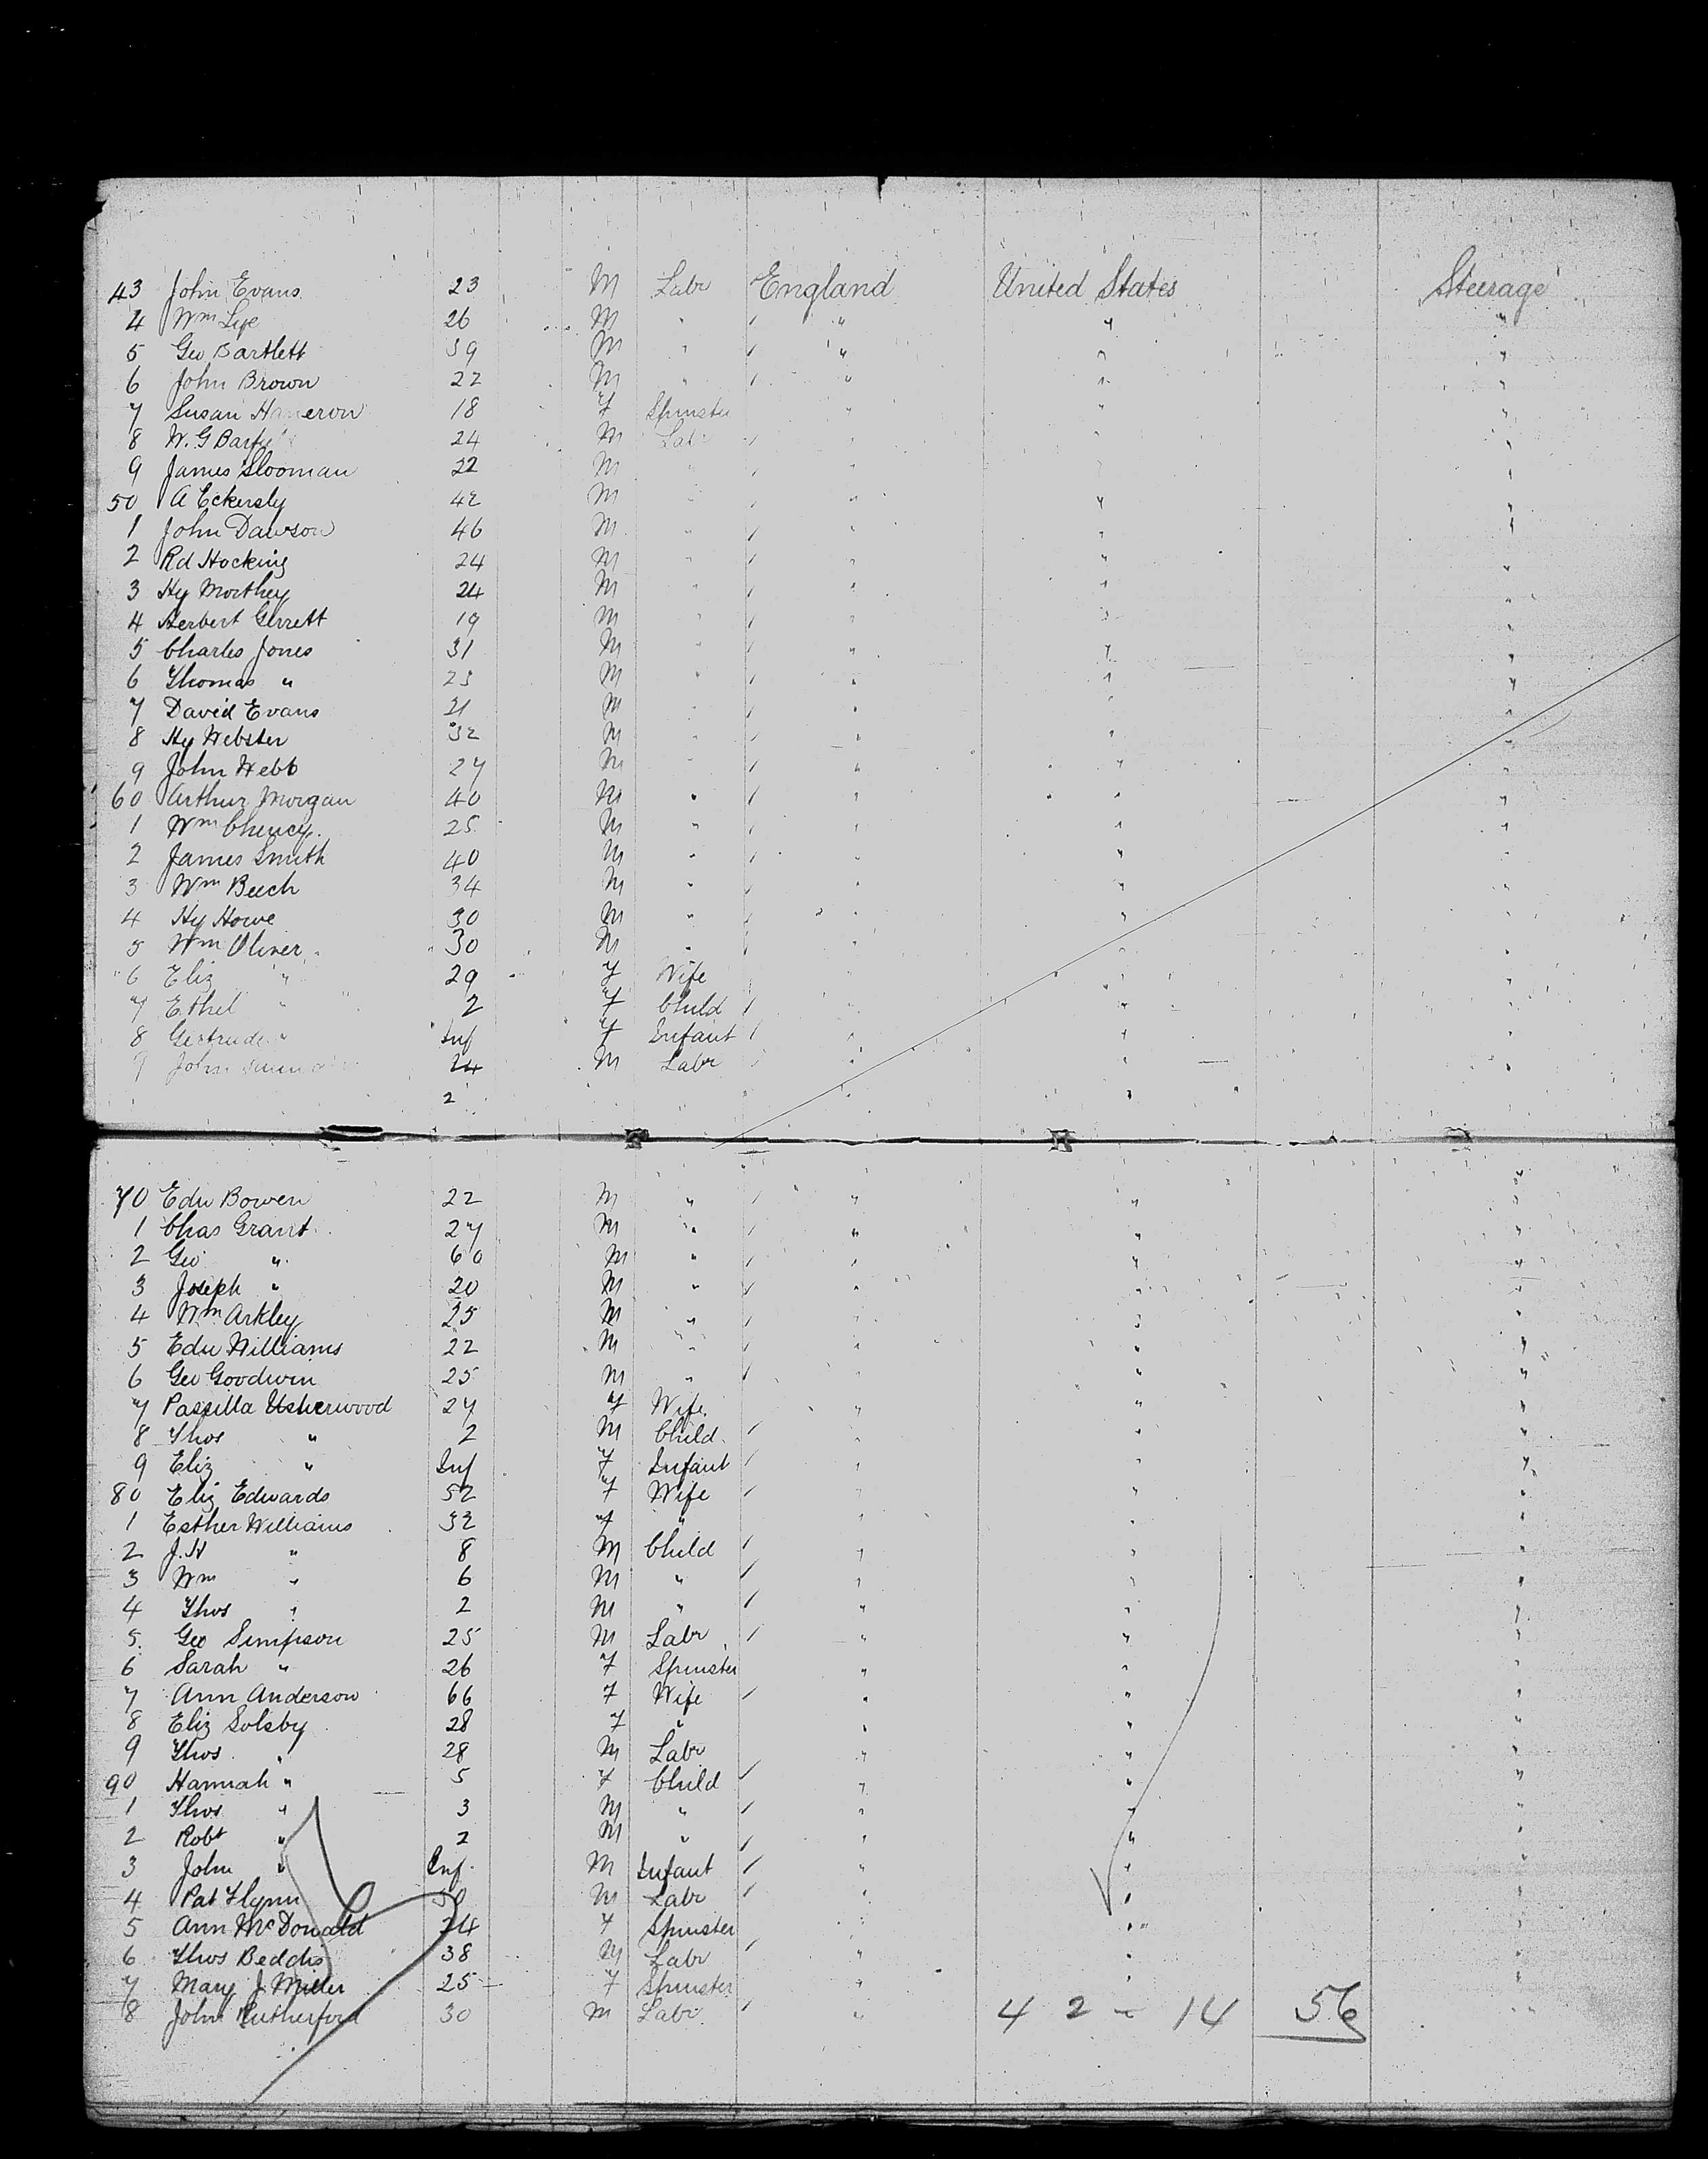 43 John Evans 23 M Labr England United States Steerage
4 Wm Lye 26 M " " " "
5 Geo Bartlett 39 M " " " "
6 John Brown 22 M " " " "
7 Susan 18 F Spinster " " "
8 W. G 24 M Labr " " "
9 James Slooman 22 M " " " "
50 A Eckersly 42 M " " " "
1 John Dawson 46 M " " " "
2 Rd Hocking 24 M " " " "
3 Hy Morthey 24 M " " " "
4 Herbert Gerrett 19 M " " " "
5 Charles Jones 31 M " " " "
6 Thomas " 23 M " " " "
7 David Evans 21 M " " " "
8 Hy Webster 32 M " " " "
9 John Webb 27 M " " " "
60 Arthur Morgan 40 M " " " "
1 Wm Cheney 25 M " " " "
2 James Smith 40 M " " " "
3 Wm Beech 34 M " " " "
4 Hy Howe 30 M " " " "
5 Wm Oliver 30 M " " " "
6 Eliz " 29 F Wife " " "
7 Ethel " 2 F Child " " "
8 Gertrude " Inf F Infant " " "
9 John 24 M Labr " " "
2
70 Edw Bowen 22 M " " " "
1 Chas Grant 27 M " " " "
2 Geo " 60 M " " " "
3 Joseph " 20 M " " " "
4 Wm Arkley 25 M " " " "
5 Edw Williams 22 M " " " "
6 Geo Goodwin 25 M " " " "
7 Passilla Usherwood 27 F Wife " " "
8 Thos " 2 M Child " " "
9 Eliz " Inf F Infant " " "
80 Eliz Edwards 52 F Wife " " "
1 Esther Williams 32 F " " " "
2 J. H " 8 M Child " " "
3 Wm " 6 M " " " "
4 Thos " 2 M " " " "
5 Geo Simpson 25 M Labr " " "
6 Sarah " 26 F Spinster " " "
7 Ann Anderson 66 F Wife " " "
8 Eliz Solsby 28 F " " " "
9 Thos " 28 M Labr " " "
90 Hannah " 5 F Child " " "
1 Thos " 3 M " " " "
2 Robt " 2 M " " " "
3 John " Inf. M Infant " " "
4 Pat Flynn 50 M Labr " " "
5 Ann McDonald 24 F Spinster " " "
6 Thos Beddis 38 M Labr " " "
7 Mary J Miller 25 F Spinster " " "
8 John Rutherford 30 M Labr " 42 - 14 56 "